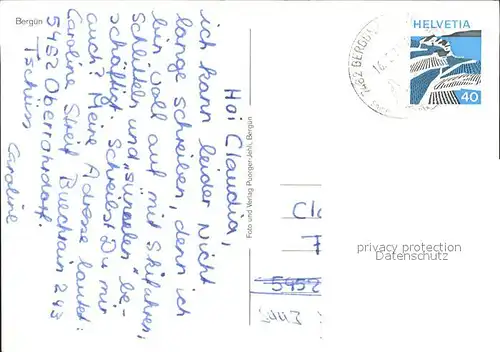 Bergün
Hoi Claudia,
ich kann leider nicht
lange schreiben, denn ich
bin voll auf mit Skifahren,
Schlitteln und "sünnelen" be-
schäftigt. Schreibst Du mir
auch? Meine Adresse lautet:
Caroline Streit Buechrain 243
5452 Oberrohrdorf.
Tschüss
Caroline
Foto und Verlag Puorger-Jehli, Bergün
HELVETIA
40
7482 BERGÜN
Cla
5452
privacy protection
Datenschutz